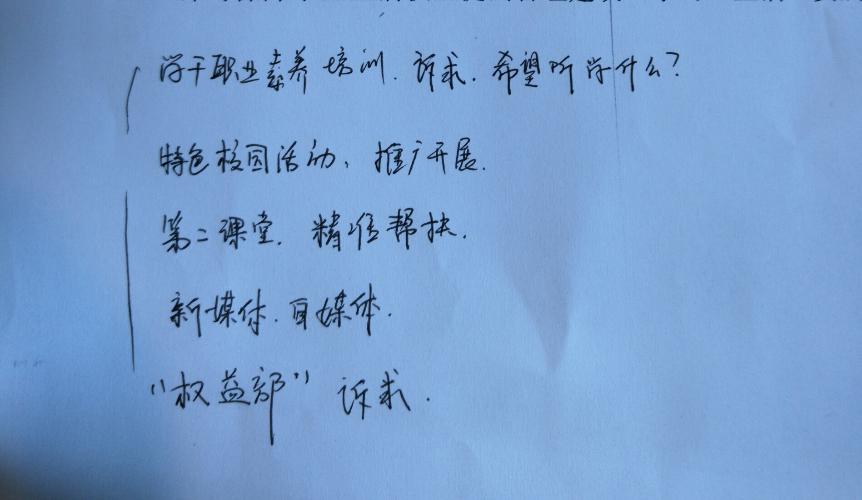 学干职业素养培训. 诉求. 希望听学什么?
特色校园活动, 推广开展.
第二课堂. 精准帮扶.
新媒体. 自媒体.
“权益部” 诉求.